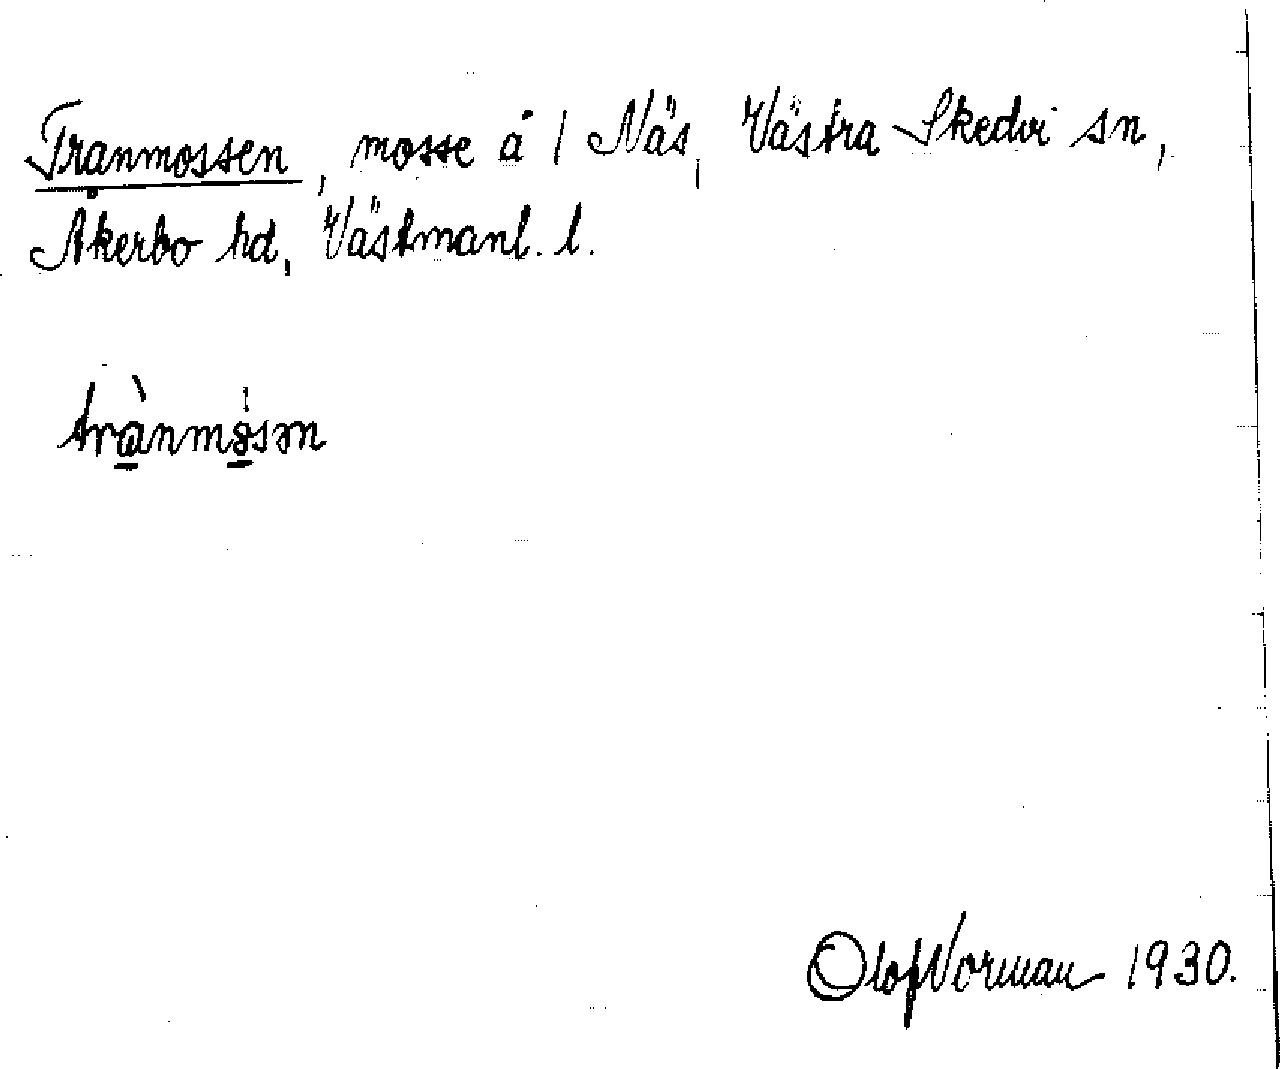 Tranmossen, mosse å 1 Näs, Västra Skedvi sn,
Åkerbo hd, Västmanl. l.
trànmo̍sən
Olof Norman 1930.